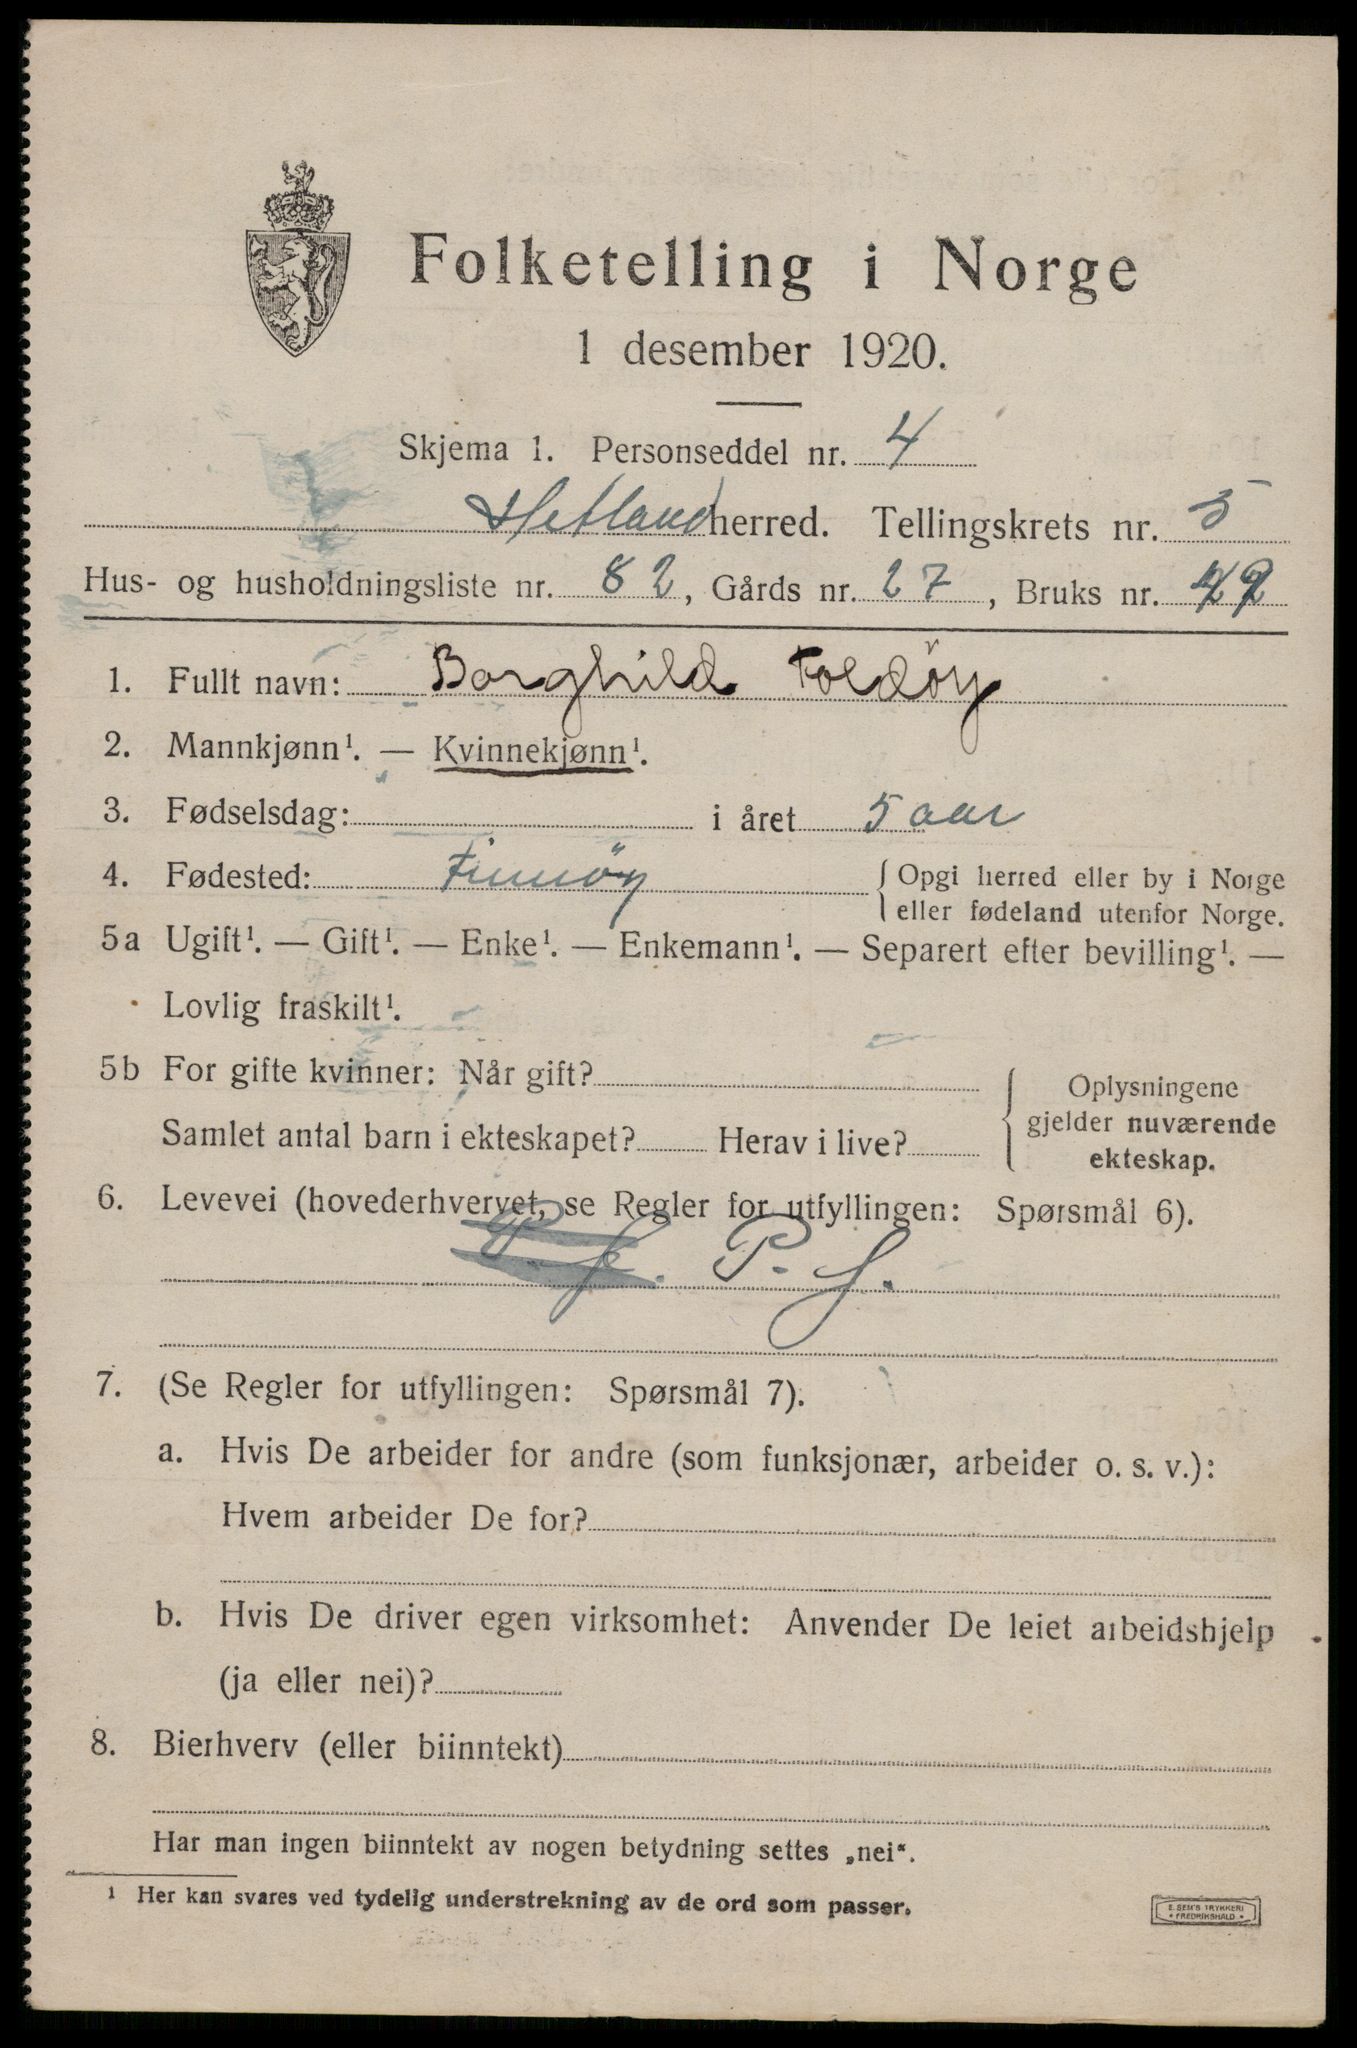 Folketelling i Norge
1 desember 1920.
Skjema 1. Personseddel nr. 4
Hetland herred. Tellingskrets nr. 5
Hus- og husholdningsliste nr. 82, Gårds nr. 27, Bruks nr.
1. Fullt navn: Borghild Foldöy
2. Mannkjønn¹. — Kvinnekjønn¹.
3. Fødselsdag: i året 5 aar
4. Fødested: Finnöy {Opgi herred eller by i Norge
eller fødeland utenfor Norge.
5a Ugift¹. — Gift¹. — Enke¹. — Enkemann¹. — Separert efter bevilling¹. —
Lovlig fraskilt¹.
5b For gifte kvinner: Når gift?
Samlet antal barn i ekteskapet? Herav i live?
{Oplysningene
gjelder nuværende
ekteskap.
6. Levevei (hovederhvervet, se Regler for utfyllingen: Spørsmål 6).
P. f.
7. (Se Regler for utfyllingen: Spørsmål 7).
a. Hvis De arbeider for andre (som funksjonær, arbeider o. s. v.):
Hvem arbeider De for?
b. Hvis De driver egen virksomhet: Anvender De leiet arbeidshjelp
(ja eller nei)?
8. Bierhverv (eller biinntekt)
Har man ingen biinntekt av nogen betydning settes „nei“.
¹ Her kan svares ved tydelig understrekning av de ord som passer.
E. SEM'S TRYKKERI
* FREDRIKSHALD *